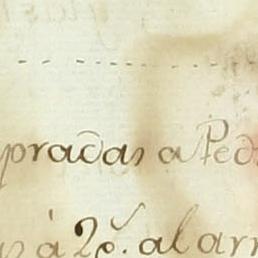 pradas a Ped
as á 2$. al arr